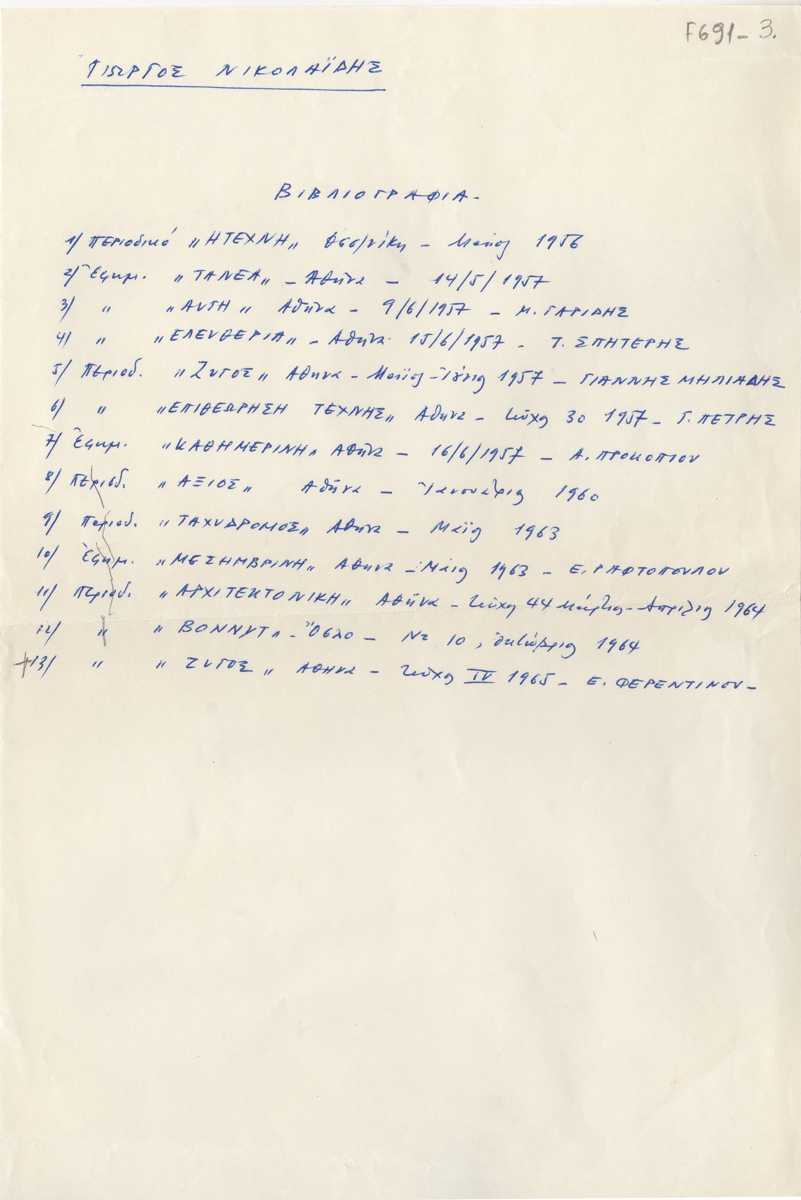 F691-3.
ΓΙΩΡΓΟΣ ΝΙΚΟΛΑΪΔΗΣ
ΒΙΒΛΙΟΓΡΑΦΙΑ.
1/ Περιοδικό „Η ΤΕΧΝΗ„ Θεσ/νίκη - Μαϊος 1956
2/ Ἐφημ. „ΤΑ ΝΕΑ„ - Αθήνα - 14/5/1957
3/ „ „ΑΥΓΗ„ Αθήνα - 9/6/1957 - Μ. ΓΑΡΙΔΗΣ
4/ „ „ΕΛΕΥΘΕΡΙΑ„ - Αθήνα 15/6/1957 - Τ. ΣΠΗΤΕΡΗΣ
5/ Περιοδ. „ΖΥΓΟΣ„ Αθήνα - Μαϊος - Ἰούνιος 1957 - ΓΙΑΝΝΗΣ ΜΗΛΙΑΔΗΣ
6/ „ „ΕΠΙΘΕΩΡΗΣΗ ΤΕΧΝΗΣ„ Αθήνα - τεύχος 30 1957 - Γ. ΠΕΤΡΗΣ
7/ Ἐφημ. „ΚΑΘΗΜΕΡΙΝΗ„ Αθήνα - 16/6/1957 - Α. ΠΡΟΚΟΠΙΟΥ
8/ Περιοδ. „ΑΞΙΟΣ„ Αθήνα - Ἰανουάριος 1960
9/ Περιοδ. „ΤΑΧΥΔΡΟΜΟΣ„ Αθήνα - Μαϊος 1963
10/ Ἐφημ. „ΜΕΣΗΜΒΡΙΝΗ„ Αθήνα - Μάιος 1963 - Ε. ΡΑΦΤΟΠΟΥΛΟΥ
11/ Περιοδ. „ΑΡΧΙΤΕΚΤΟΝΙΚΗ„ Αθήνα - τεύχος 44 Μάρτιος - Απρίλιος 1964
12/ „ „ ΒΟΝΝΥΤΛ - Ὄσλο - Νς 10, Οκτώβριος 1964
+13/ „ „ ΖΥΓΟΣ „ Αθήνα - τεύχος IV 1965 - Ε. ΦΕΡΕΝΤΙΝΟΥ -